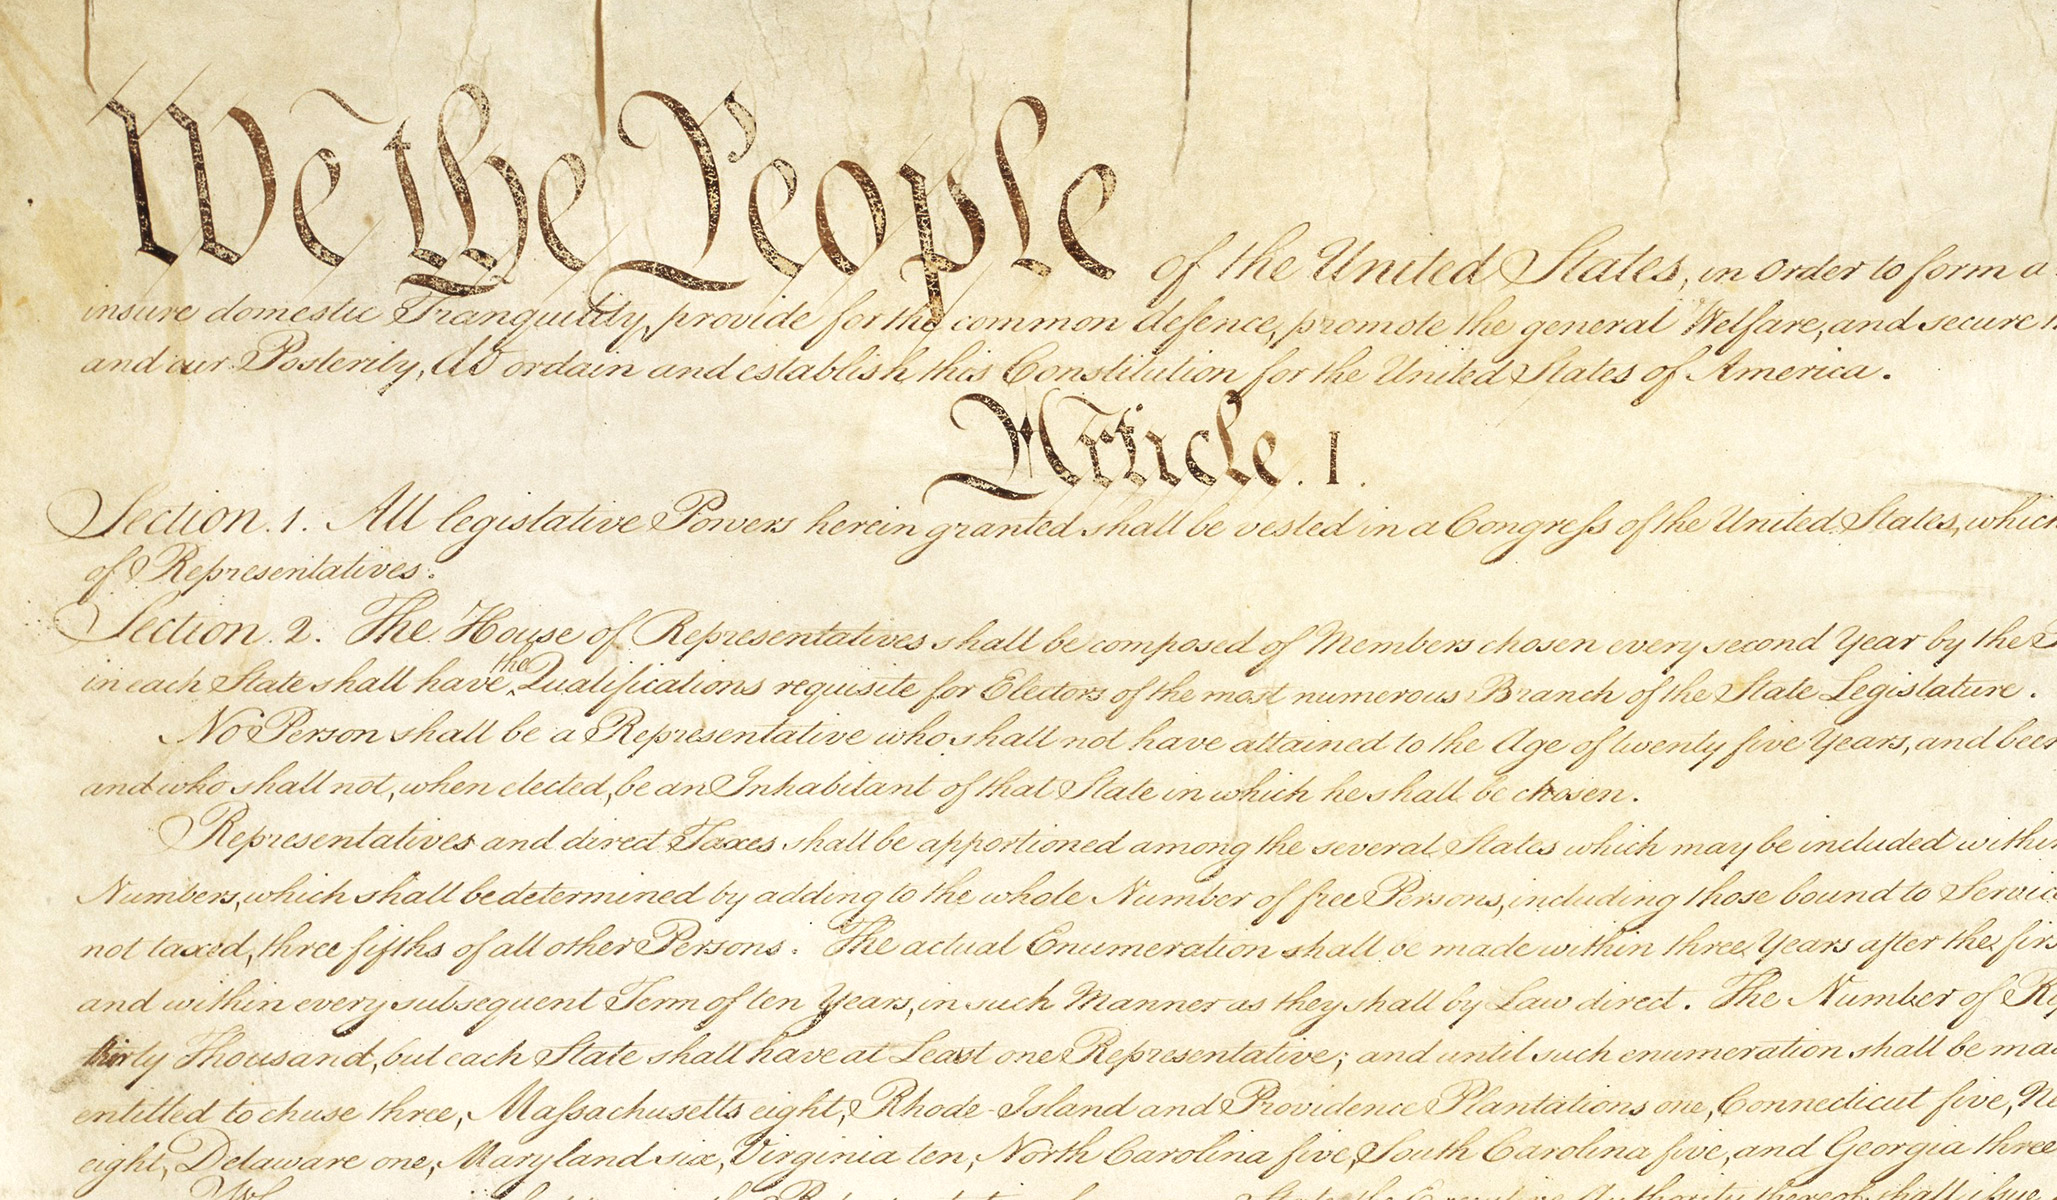 We the People of the United States, in Order to form a
insure domestic Tranquility, provide for the common defence, promote the general Welfare, and secure
and our Posterity, do ordain and establish this Constitution for the United States of America.
Article. I.
Section. 1. All legislative Powers herein granted shall be vested in a Congress of the United States, which
of Representatives.
Section. 2. The House of Representatives shall be composed of Members chosen every second Year by the
the
in each State shall have Qualifications requisite for Electors of the most numerous Branch of the State Legislature.
No Person shall be a Representative who shall not have attained to the Age of twenty five Years, and been
and who shall not, when elected, be an Inhabitant of that State in which he shall be chosen.
Representatives and direct Taxes shall be apportioned among the several States which may be included within
Numbers, which shall be determined by adding to the whole Number of free Persons, including those bound to Service
not taxed, three fifths of all other Persons. The actual Enumeration shall be made within three Years after the firs
and within every subsequent Term of ten Years, in such Manner as they shall by Law direct. The Number of Rep
thirty Thousand, but each State shall have at Least one Representative; and until such enumeration shall be mad
entitled to chuse three, Massachusetts eight, Rhode-Island and Providence Plantations one, Connecticut five, Ne
eight, Delaware one, Maryland six, Virginia ten, North Carolina five, South Carolina five, and Georgia three